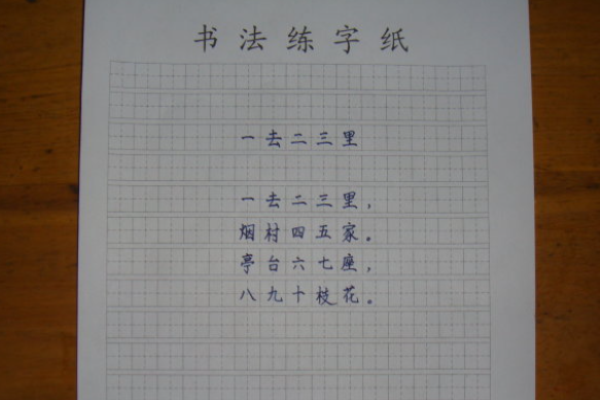 书法练字纸
一去二三里
一去二三里，
烟村四五家。
亭台六七座，
八九十枝花。